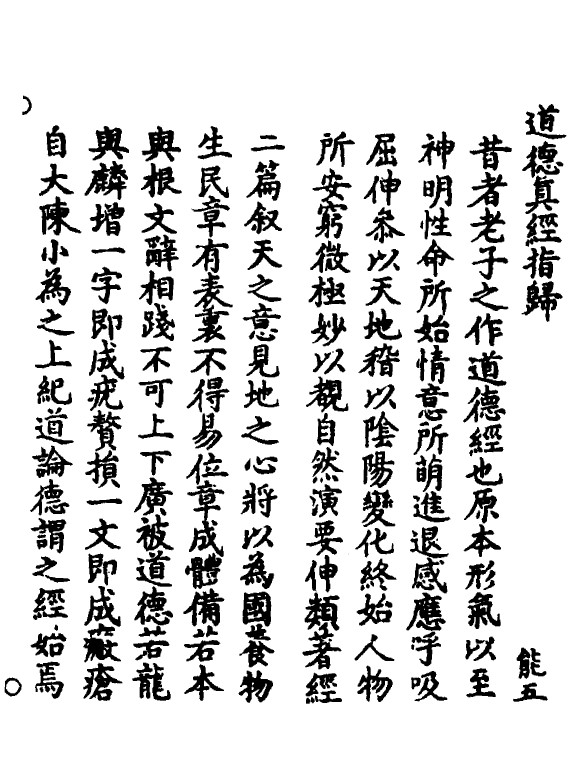 道德真經指歸
能五
昔者老子之作道德經也原本形氣以至
神明性命所始情意所萌進退感應呼吸
屈伸叅以天地稽以陰陽變化終始人物
所安窮微極妙以覩自然演要伸類著經
二篇叙天之意見地之心將以為國養物
生民章有表裏不得易位章成體備若本
與根文辭相踐不可上下廣被道德若龍
與麟增一字即成疣贅損一文即成瘢瘡
自大陳小為之上紀道論德謂之經始焉